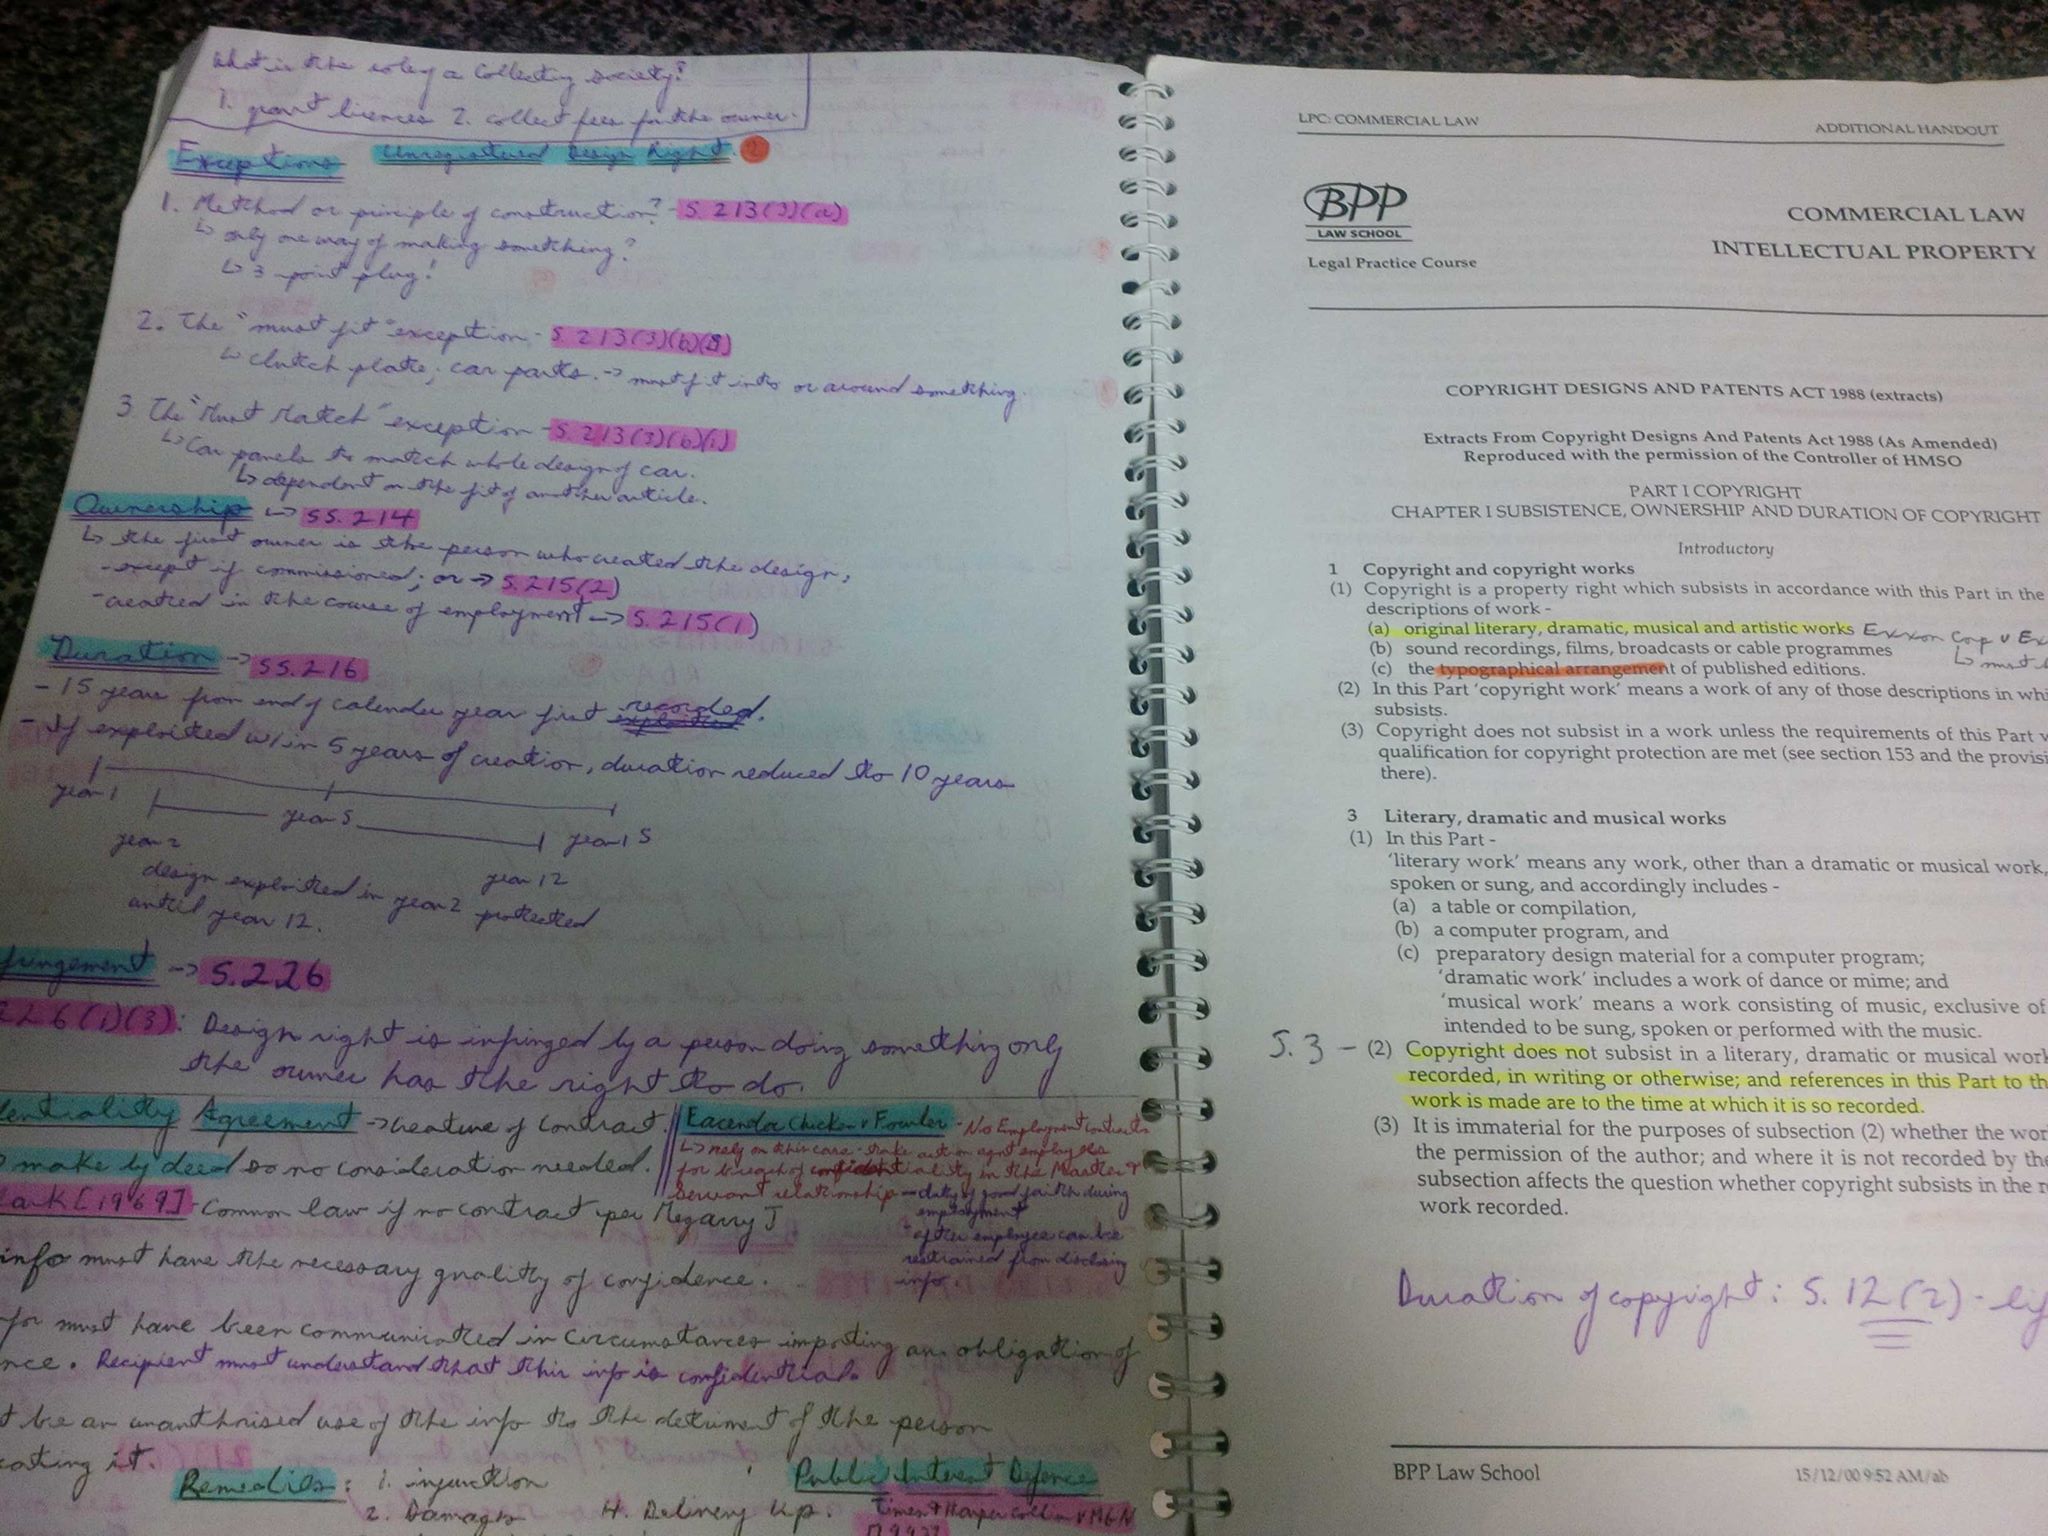 What is the role of a Collecting society?
1. grant licences 2. collect fees for the owner.
Exceptions Unregistered Design Right. 2
1. Method or principle of construction? - S. 213(3)(a)
↳ only one way of making something?
↳ 3 point plug!
2. The "must fit" exception - S. 213(3)(b)(i)
↳ clutch plate; car parts. → must fit into or around something.
3. The "Must Match" exception - S. 213(3)(b)(i)
↳ Car panels to match whole design of car.
↳ dependent on the fit of another article.
Ownership ↳ SS. 214
↳ the first owner is the person who created the design;
- except if commissioned; or → S. 215(2)
- created in the course of employment → S. 215(1)
Duration → SS. 216
- 15 years from end of calender year first recorded.
- If exploited w/in 5 years of creation, duration reduced to 10 years
year 1 year 5 year 15
year 2 year 12
design exploited in year 2 protected
until year 12.
fringement → S. 226
226(1)(3): Design right is infringed by a person doing something only
the owner has the right to do.
dentiality Agreement → creature of contract.
make by deed so no consideration needed.
Faccenda Chicken v Fowler - No Employment contracts
↳ rely on this case - take action agnst employees
for breach of confidentiality in the Master &
Servant relationship - duty of good faith during
employment
- after employee can be
restrained from disclosing
info.
lark [1969] - Common law if no contract per Megarry J
info must have the necessary quality of confidence.
for must have been communicated in circumstances importing an obligation of
nce. Recipient must understand that this info is confidential.
t be an unauthorised use of the info to the detriment of the person
cating it.
Remedies: 1. injunction
2. Damages 4. Delivery Up.
Public Interest Defence
Times & Harper Collins v MGN
LPC: COMMERCIAL LAW ADDITIONAL HANDOUT
BPP
LAW SCHOOL
Legal Practice Course
COMMERCIAL LAW
INTELLECTUAL PROPERTY
COPYRIGHT DESIGNS AND PATENTS ACT 1988 (extracts)
Extracts From Copyright Designs And Patents Act 1988 (As Amended)
Reproduced with the permission of the Controller of HMSO
PART I COPYRIGHT
CHAPTER I SUBSISTENCE, OWNERSHIP AND DURATION OF COPYRIGHT
Introductory
1 Copyright and copyright works
(1) Copyright is a property right which subsists in accordance with this Part in the
descriptions of work -
(a) original literary, dramatic, musical and artistic works Exxon Corp v Ex
(b) sound recordings, films, broadcasts or cable programmes ↳ must
(c) the typographical arrangement of published editions.
(2) In this Part 'copyright work' means a work of any of those descriptions in whi
subsists.
(3) Copyright does not subsist in a work unless the requirements of this Part
qualification for copyright protection are met (see section 153 and the provisi
there).
3 Literary, dramatic and musical works
(1) In this Part -
'literary work' means any work, other than a dramatic or musical work,
spoken or sung, and accordingly includes -
(a) a table or compilation,
(b) a computer program, and
(c) preparatory design material for a computer program;
'dramatic work' includes a work of dance or mime; and
'musical work' means a work consisting of music, exclusive of
intended to be sung, spoken or performed with the music.
S. 3 - (2) Copyright does not subsist in a literary, dramatic or musical work
recorded, in writing or otherwise; and references in this Part to th
work is made are to the time at which it is so recorded.
(3) It is immaterial for the purposes of subsection (2) whether the wor
the permission of the author; and where it is not recorded by the
subsection affects the question whether copyright subsists in the r
work recorded.
Duration of copyright: S. 12(2) - lif
BPP Law School 15/12/00 9:52 AM/ab